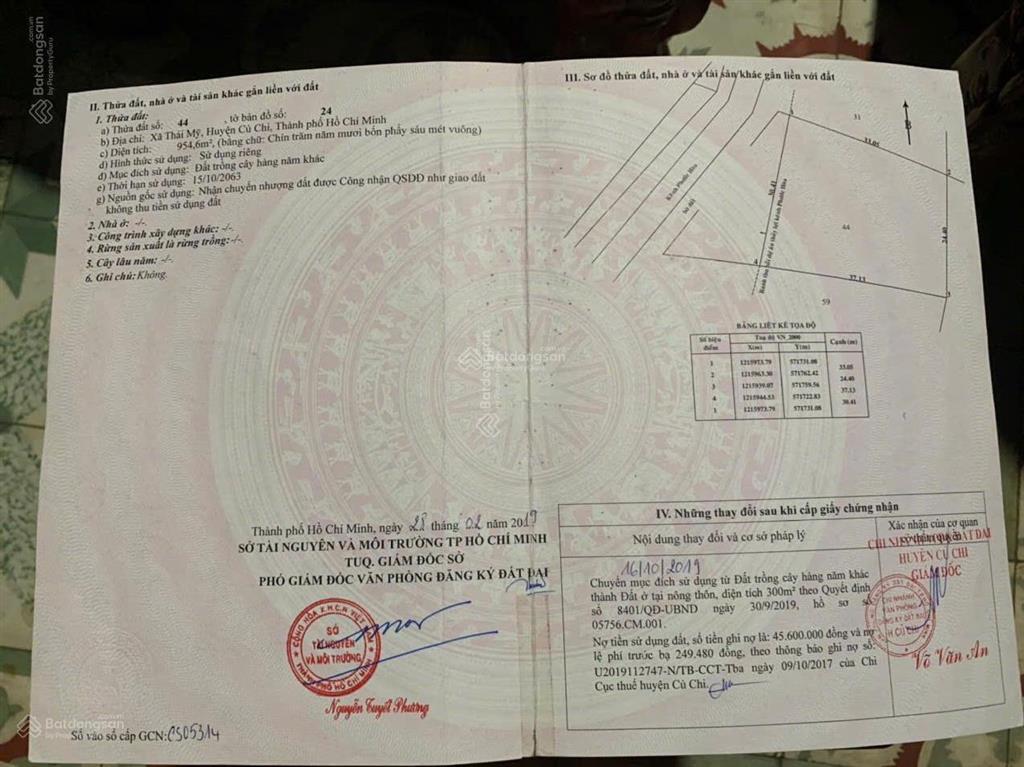 II. Thửa đất, nhà ở và tài sản khác gắn liền với đất
1. Thửa đất:
a) Thửa đất số: 44 , tờ bản đồ số: 24
b) Địa chỉ: Xã Thái Mỹ, Huyện Củ Chi, Thành phố Hồ Chí Minh
c) Diện tích: 954,6m², (bằng chữ: Chín trăm năm mươi bốn phẩy sáu mét vuông)
d) Hình thức sử dụng: Sử dụng riêng
đ) Mục đích sử dụng: Đất trồng cây hàng năm khác
e) Thời hạn sử dụng: 15/10/2063
g) Nguồn gốc sử dụng: Nhận chuyển nhượng đất được Công nhận QSDĐ như giao đất
không thu tiền sử dụng đất
2. Nhà ở: -/-
3. Công trình xây dựng khác: -/-
4. Rừng sản xuất là rừng trồng: -/-
5. Cây lâu năm: -/-
6. Ghi chú: Không.
Thành phố Hồ Chí Minh, ngày 28 tháng 02 năm 2019
SỞ TÀI NGUYÊN VÀ MÔI TRƯỜNG TP HỒ CHÍ MINH
TUQ. GIÁM ĐỐC SỞ
PHÓ GIÁM ĐỐC VĂN PHÒNG ĐĂNG KÝ ĐẤT ĐAI
CỘNG HÒA X.H.C.N VIỆT NAM
SỞ
TÀI NGUYÊN
VÀ MÔI TRƯỜNG
THÀNH PHỐ HỒ CHÍ MINH
Nguyễn Tuyết Phương
Số vào sổ cấp GCN: CS05314
III. Sơ đồ thửa đất, nhà ở và tài sản khác gắn liền với đất
B
31
33.05
Kênh Phước Hòa
bờ đất
30.41
Ranh thu hồi dự án thủy lợi kênh Phước Hòa
44
24.40
37.13
59
1
2
3
4
BẢNG LIỆT KÊ TỌA ĐỘ
Số hiệu điểm Toạ độ VN_2000 Cạnh (m)
X(m) Y(m)
1 1215973.79 571731.08
33.05
2 1215963.30 571762.42
24.40
3 1215939.07 571759.56
37.13
4 1215944.53 571722.83
30.41
1 1215973.79 571731.08
IV. Những thay đổi sau khi cấp giấy chứng nhận
Nội dung thay đổi và cơ sở pháp lý
Xác nhận của cơ quan
có thẩm quyền
16/10/2019
Chuyển mục đích sử dụng từ Đất trồng cây hàng năm khác
thành Đất ở tại nông thôn, diện tích 300m² theo Quyết định
số 8401/QĐ-UBND ngày 30/9/2019, hồ sơ số
05756.CM.001.
Nợ tiền sử dụng đất, số tiền ghi nợ là: 45.600.000 đồng và nợ
lệ phí trước bạ 249.480 đồng, theo thông báo ghi nợ số:
U2019112747-N/TB-CCT-Tba ngày 09/10/2017 của Chi
Cục thuế huyện Củ Chi.
HUYỆN CỦ CHI
GIÁM ĐỐC
CHI NHÁNH
VĂN PHÒNG
ĐĂNG KÝ ĐẤT ĐAI
H.CỦ CHI
Võ Văn An
Batdongsan
.com.vn
by PropertyGuru
Batdongsan
.com.vn
by PropertyGuru
Batdongsan
.com.vn
by PropertyGuru
Batdongsan
.com.vn
by PropertyGuru
Batdongsan
.com.vn
by PropertyGuru